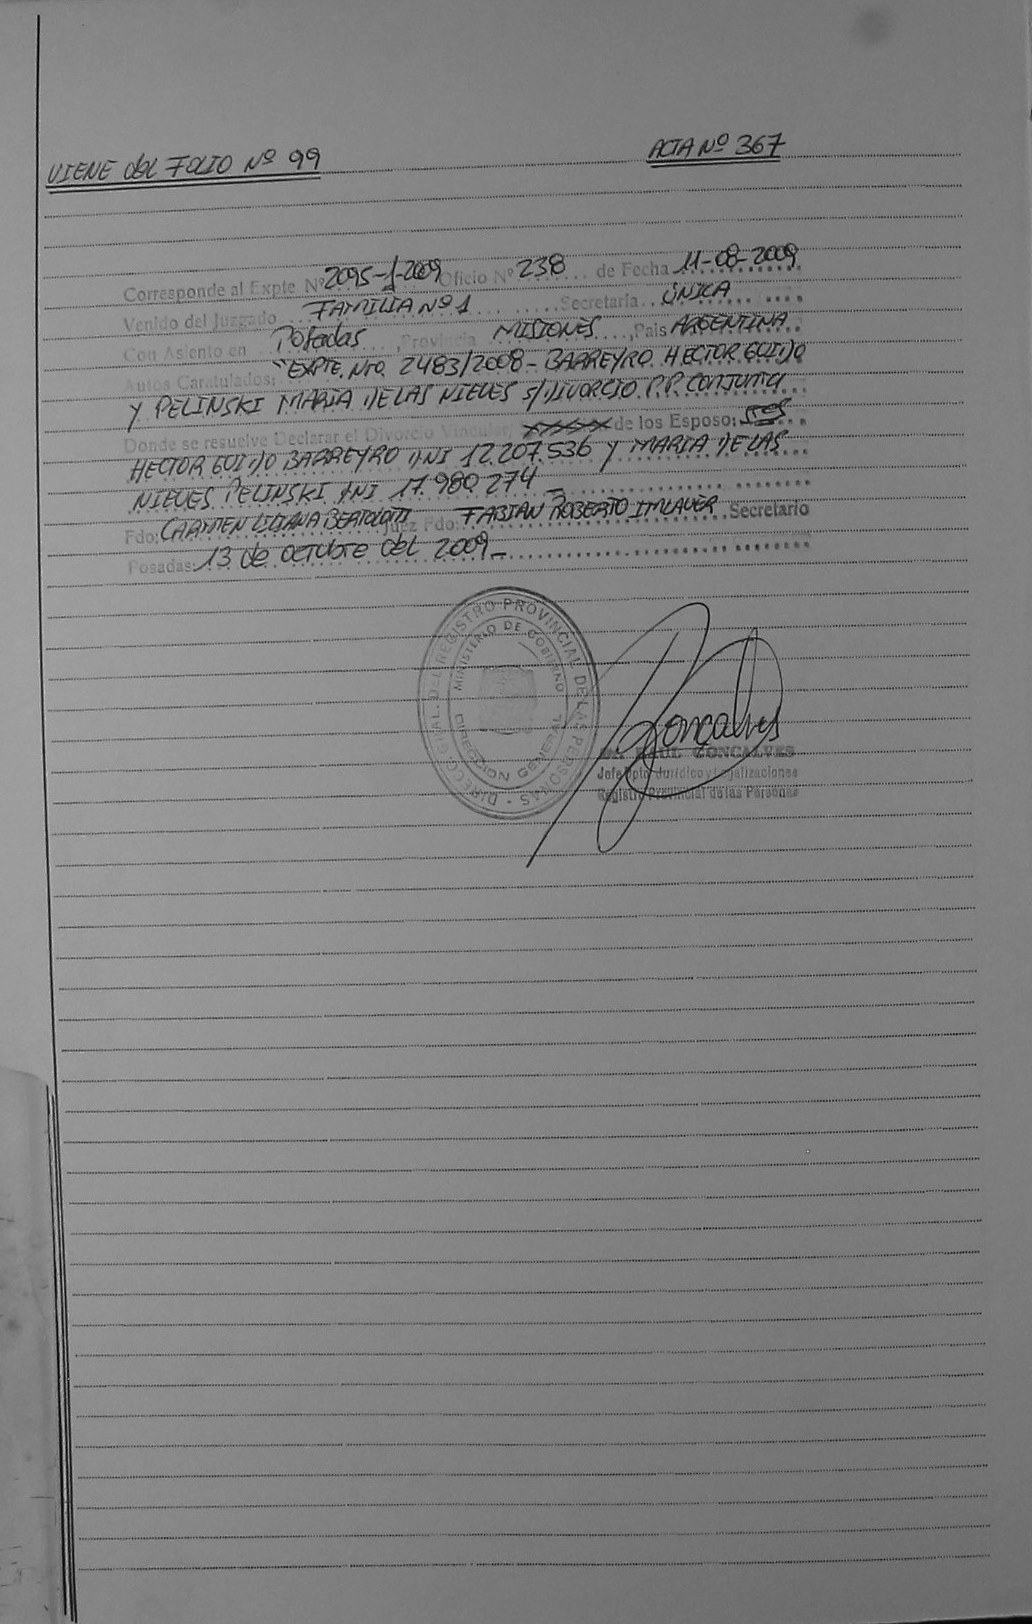 VIENE del FOLIO Nº 99
ACTA Nº 367
Corresponde al Expte Nº 2095-1-2009 Oficio Nº 238 de Fecha 11-08-2009
Venido del Juzgado FAMILIA Nº 1 Secretaria ÚNICA
Con Asiento en Posadas, Provincia MISIONES, Pais ARGENTINA
Autos Caratulados: "EXPTE. Nro. 2483/2008 - BARREYRO HECTOR GUIDO
Y PELINSKI MARIA DE LAS NIEVES S/ DIVORCIO P.P. CONJUNTA
Donde se resuelve Declarar el Divorcio Vincular de los Esposo: SOS
HECTOR GUIDO BARREYRO DNI 12.207.536 Y MARIA DE LAS
NIEVES PELINSKI DNI 17.980.274 -
Fdo: CARMEN LILIANA BERTOLOTTI Juez Fdo: FABIAN ROBERTO IMLAUER Secretario
Posadas: 13 de octubre del 2009 -
DIRECC. GRAL. DEL REGISTRO PROVINCIAL DE LAS PERSONAS -
MINISTERIO DE GOBIERNO
DIRECCION GENERAL
Gonçalves
Dr. RAUL GONCALVES
Jefe Dpto Jurídico y Legalizaciones
Registro Provincial de las Personas